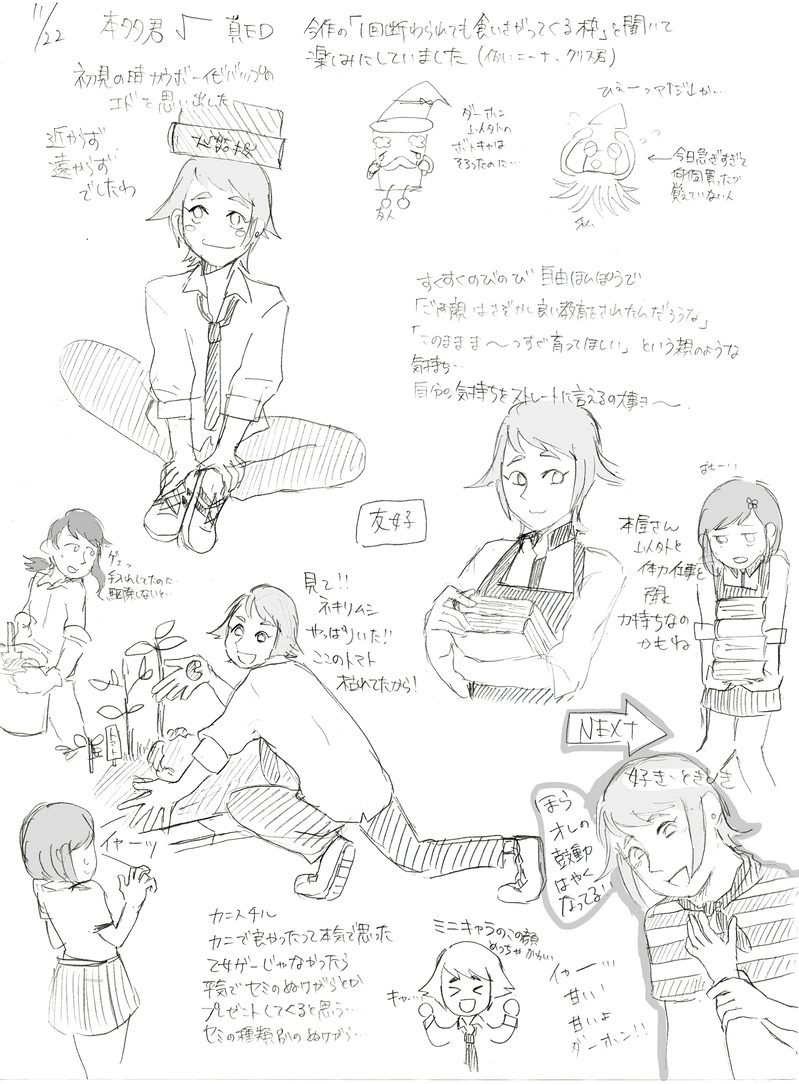 11/22 本タタ君√ 真ED
今作の「1回断わられても食いさがってくる枠」を聞いて
楽しみにしていました(例:ニーナ、クリス君)
初見の時カウボーイビバップの
エドを思い出した
近からず
遠からず
でしたわ
ダーホン
以外の
ボトキャは
そろったのに…
友人
ひえーっ
今日急ぎすぎて
何個買ったか
覚えていない人
私
すくすくのびのび 自由ほんぽうで
「ご両親はさぞかし良い教育をされたんだろうな」
「このまままーっすぐ育ってほしい」という親のような
気持ち…
自分の気持ちをストレートに言えるの大事ヨ〜
友好
本屋さん
以外と
体力仕事と
聞く
力持ちなの
かもね
ゲェっ
手入れしてたのに…
駆除しないと…
見て!!
ネキリムシ
やっぱりいた!!
ここのトマト
枯れてたから!
トマト
NEXT
好き、ときめき
ほら
オレの
鼓動
はやく
なってる
イヤーッ
カニスチル
カニで良かったって本気で思った
乙女ゲーじゃなかったら
平気でセミのぬけがらとか
プレゼントしてくると思う…
セミの種類別のぬけがら…
ミニキャラのこの顔
めっちゃかわいい
キャー
イヤーッ…
甘い!
甘いよ
ダーホン!!